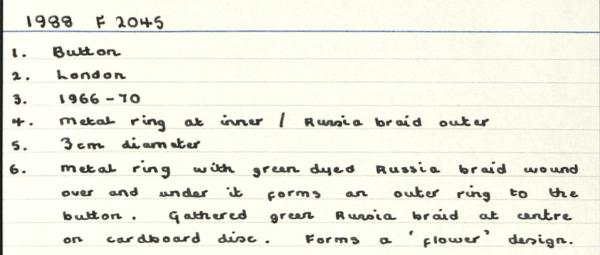 1988 F 2045
1. Button
2. London
3. 1966-70
4. Metal ring at inner / Russia braid outer
5. 3cm diameter
6. Metal ring with green dyed Russia braid wound
over and under it forms an outer ring to the
button. Gathered green Russia braid at centre
on cardboard disc. Forms a 'flower' design.